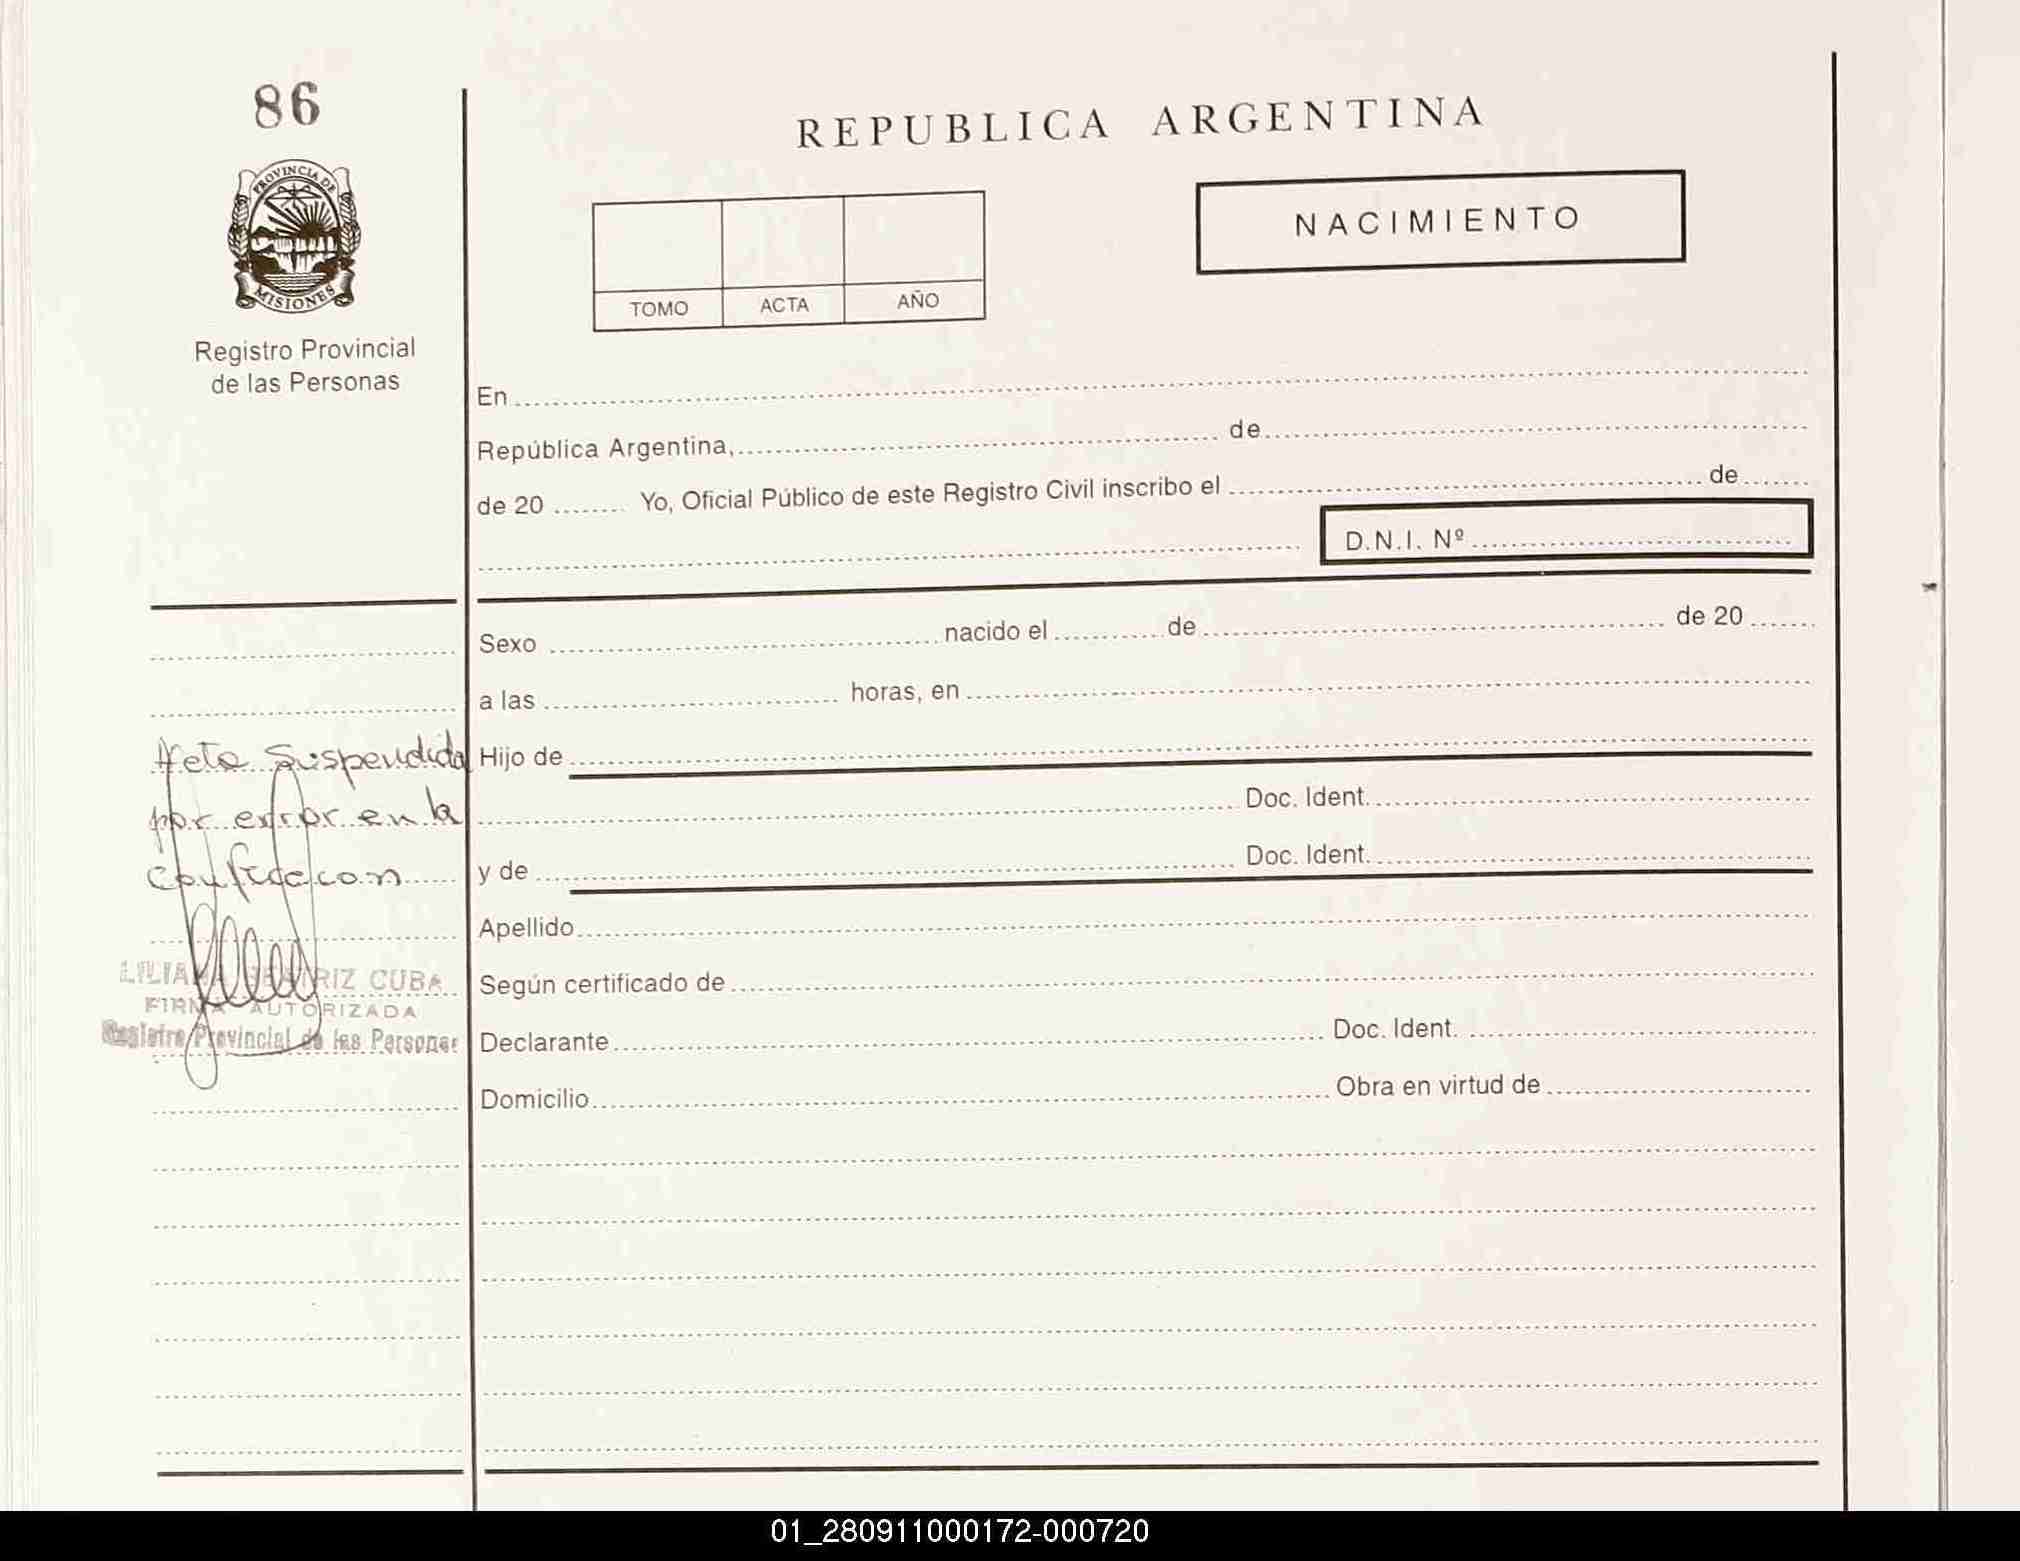 86
REPUBLICA ARGENTINA
PROVINCIA DE
MISIONES
NACIMIENTO
TOMO ACTA AÑO
Registro Provincial
de las Personas
En
República Argentina, de
de 20 Yo, Oficial Público de este Registro Civil inscribo el de
D.N.I. Nº
Sexo nacido el de de 20
a las horas, en
Acta Suspendida
por error en la
Hijo de
Doc. Ident.
y de Doc. Ident.
Apellido
LILIANA BEATRIZ CUBA
FIRMA AUTORIZADA
Registro Provincial de las Personas
Según certificado de
Declarante Doc. Ident.
Domicilio Obra en virtud de
01_280911000172-000720